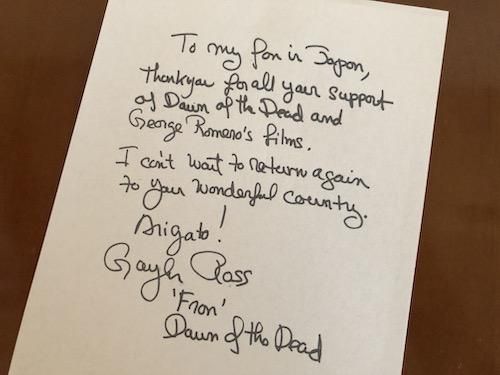 To my fan in Japan,
Thank you for all your support
of Dawn of the Dead and
George Romero's films.
I can't wait to return again
to your wonderful country.
Arigato!
Gaylen Ross
'Fran'
Dawn of the Dead